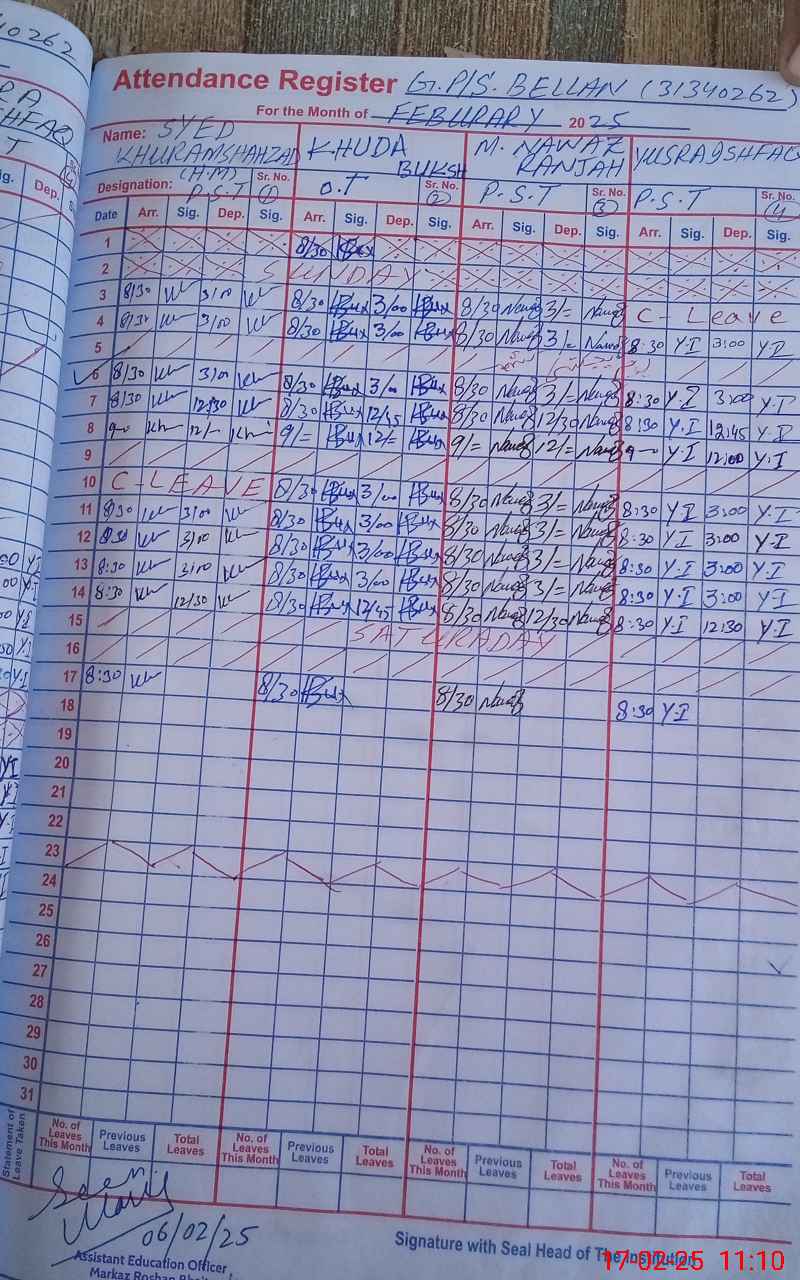 Attendance Register G.P/S. BELLAN (31340262)
For the Month of FEBURARY 2025
Name: SYED KHURAMSHAHZAD KHUDA BUKSH M. NAWAZ RANJAH YUSRA ISHFAQ
Designation: (H.M) P.S.T Sr. No. 1 O.T Sr. No. 2 P.S.T Sr. No. 3 P.S.T Sr. No. 4
Date Arr. Sig. Dep. Sig. Arr. Sig. Dep. Sig. Arr. Sig. Dep. Sig. Arr. Sig. Dep. Sig.
1 8/30 Bux
2 SUNDAY
3 8/30 3/00 8/30 Bux 3/00 Bux 8/30 Nawaz 3/= Nawaz C-Leave
4 8/30 3/00 8/30 Bux 3/00 Bux 8/30 Nawaz 3/= Nawaz 8:30 Y.I 3:00 Y.I
5
6 8/30 3/00 8/30 Bux 3/00 Bux 8/30 Nawaz 3/= Nawaz 8:30 Y.I 3:00 Y.I
7 8/30 12/30 8/30 Bux 12/45 Bux 8/30 Nawaz 12/30 Nawaz 8:30 Y.I 12:45 Y.I
8 12/- 9/= Bux 12/= Bux 9/= Nawaz 12/= Nawaz Y.I 12:00 Y.I
9
10 C-LEAVE 8/30 Bux 3/00 Bux 8/30 Nawaz 3/= Nawaz 8:30 Y.I 3:00 Y.I
11 8/30 3/00 8/30 Bux 3/00 Bux 8/30 Nawaz 3/= Nawaz 8:30 Y.I 3:00 Y.I
12 8/30 3/00 8/30 Bux 3/00 Bux 8/30 Nawaz 3/= Nawaz 8:30 Y.I 3:00 Y.I
13 8:30 3/00 8/30 Bux 3/00 Bux 8/30 Nawaz 3/= Nawaz 8:30 Y.I 3:00 Y.I
14 8:30 12/30 8/30 Bux 12/45 Bux 8/30 Nawaz 12/30 Nawaz 8:30 Y.I 12:30 Y.I
15 SATURADAY
16
17 8:30 8/30 Bux 8/30 Nawaz 8:30 Y.I
18
19
20
21
22
23
24
25
26
27
28
29
30
31
Statement of Leave Taken
No. of Leaves This Month Previous Leaves Total Leaves No. of Leaves This Month Previous Leaves Total Leaves No. of Leaves This Month Previous Leaves Total Leaves No. of Leaves This Month Previous Leaves Total Leaves
Seen
06/02/25
Signature with Seal Head of The Institution
Assistant Education Officer
Markaz Roshan
17-02-25 11:10